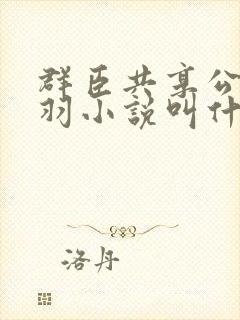 群臣共享公
羽小说叫什
洛丹